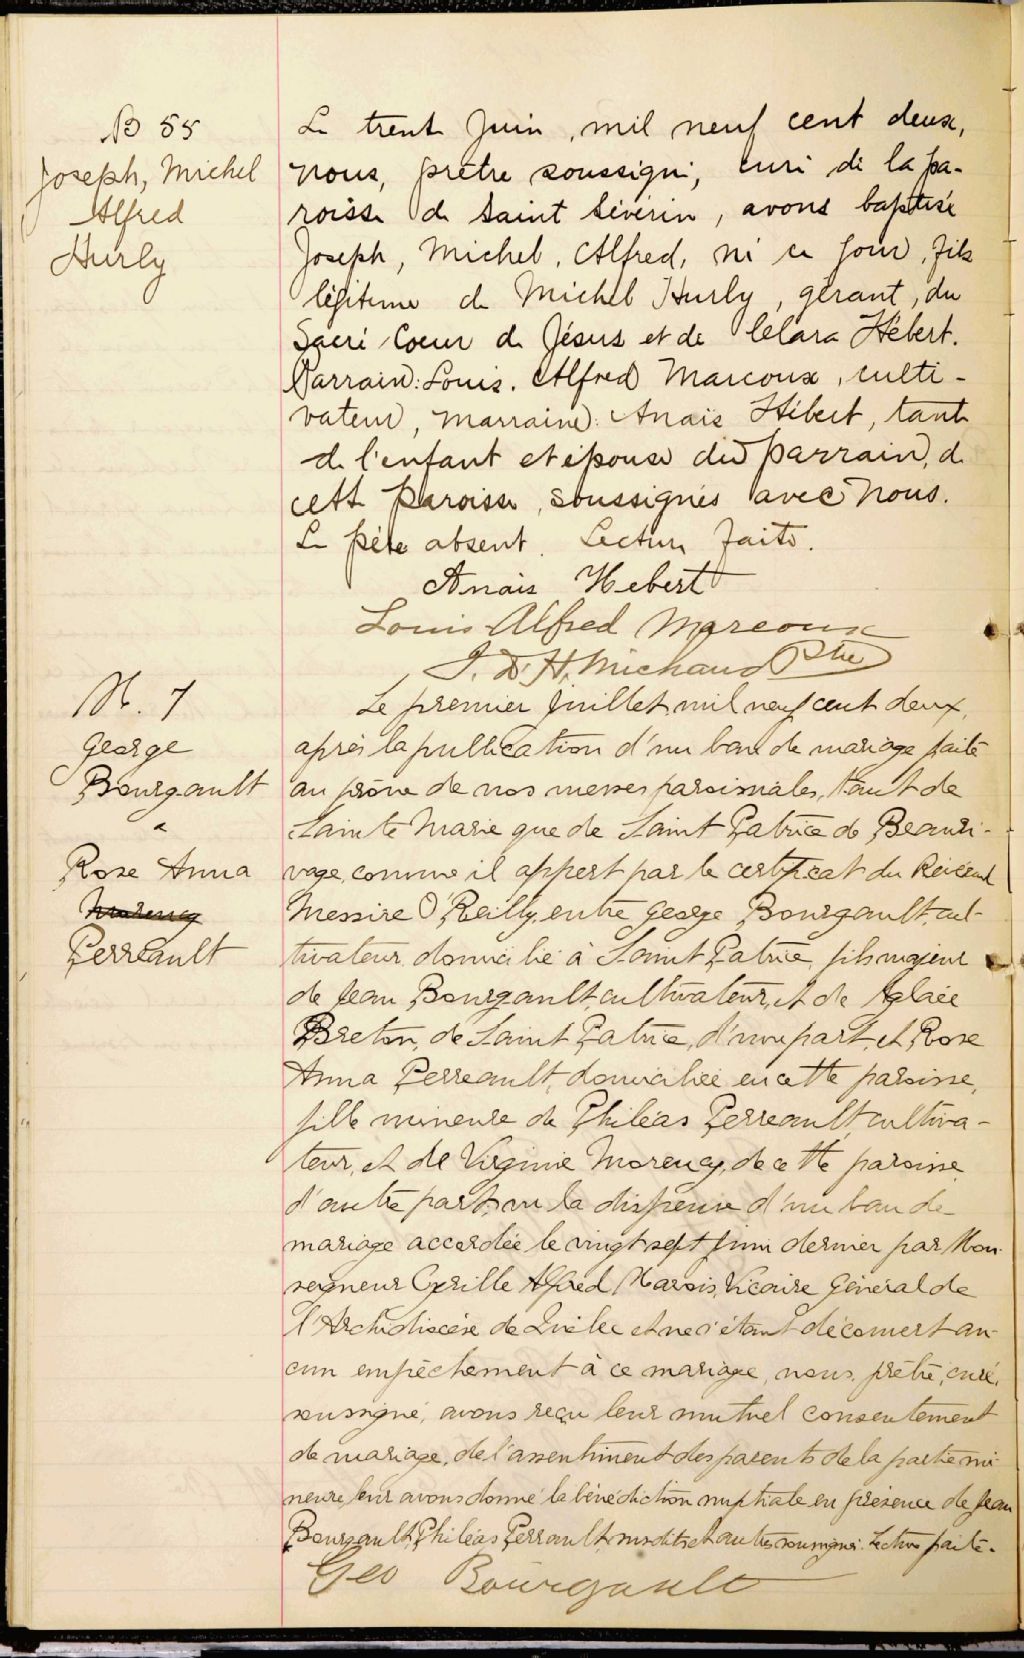 B 55
Joseph, Michel
Alfred
Hurly
Le trente Juin, mil neuf cent deux,
nous, prêtre soussigné, curé de la pa-
roisse de Saint Sévérin, avons baptisé
Joseph, Michel, Alfred, né ce jour, fils
légitime de Michel Hurly, gérant, du
Sacré Coeur de Jésus et de Clara Hébert.
Parrain: Louis. Alfred Marcoux, culti-
vateur, marraine: Anaïs Hébert, tante
de l'enfant et épouse du parrain, de
cette paroisse, soussignés avec nous.
Le père absent. Lecture faite.
Anais Hebert
Louis-Alfred Marcoux
J. D. H. Michaud Ptre
M. 7
George
Bourgault
&
Rose Anna
Morency
Perreault
Le premier Juillet mil neuf cent deux,
après la publication d'un ban de mariage faite
au prône de nos messes paroissiales, tant de
Sainte Marie que de Saint Patrice de Beauri-
vage, comme il appert par le certificat du Révérend
Messire O'Reilly, entre George Bourgault, cul-
tivateur, domicilié à Saint Patrice, fils majeur
de Jean Bourgault, cultivateur, et de Aglaée
Breton, de Saint Patrice, d'une part, et Rose
Anna Perreault, domiciliée en cette paroisse,
fille mineure de Philéas Perreault, cultiva-
teur, et de Virginie Morency, de cette paroisse,
d'autre part; vu la dispense d'un ban de
mariage accordée le vingt sept juin dernier par Mon-
seigneur Cyrille Alfred Marois, Vicaire Général de
l'Archidiocèse de Québec et ne s'étant découvert au-
cun empêchement à ce mariage, nous, prêtre, curé,
soussigné, avons reçu leur mutuel consentement
de mariage, de l'assentiment des parents de la partie mi-
neure, leur avons donné la bénédiction nuptiale en présence de Jean
Bourgault, Philéas Perreault, susdits et autres soussignés. Lecture faite.
Geo Bourgault